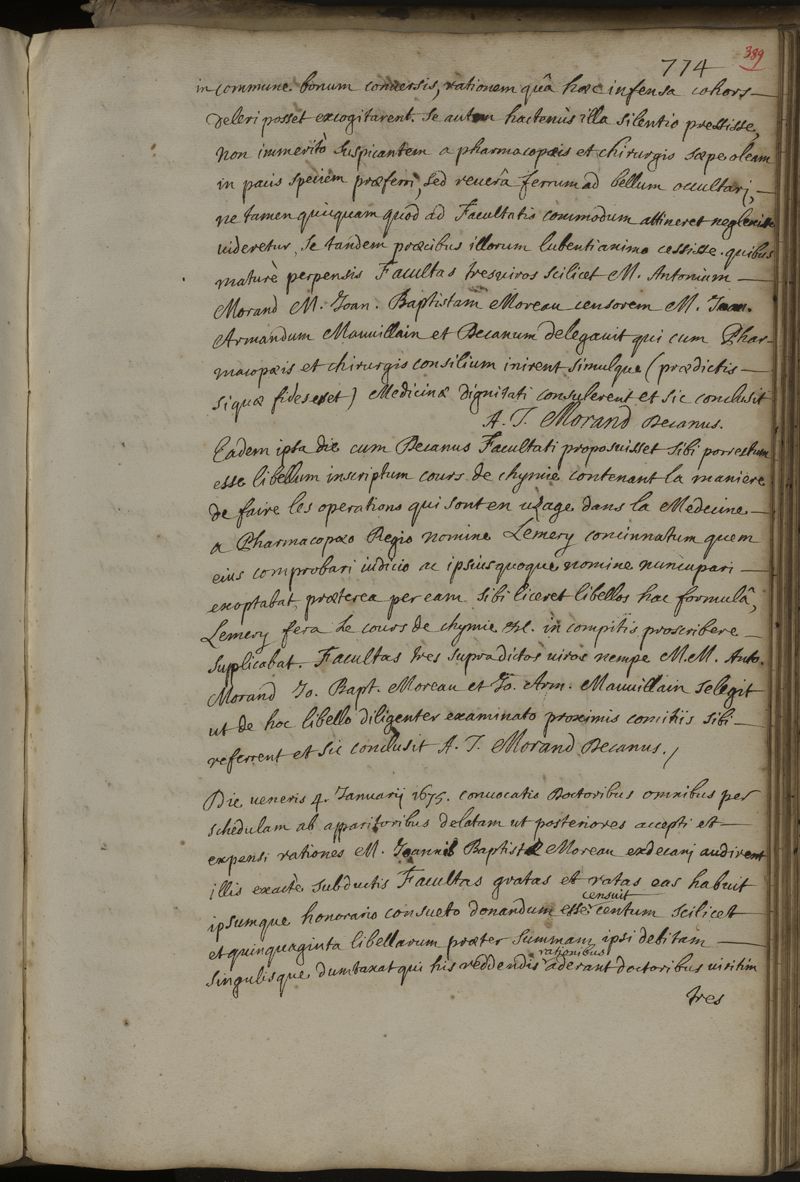 389
774
in commune bonum conversis, rationem quâ hæc infensa cohors
deleri posset excogitarent. Se autem hactenùs illa silentio pressisse,
non immeritò suspicantem a pharmacopæis et chirurgis sæpe oleam
in pacis speciem præferri, sed reverâ ferrum ad bellum occultari,
ne tamen quicquam quod ad Facultatis commodum attineret neglexisse
videretur, se tandem præcibus illorum lubenti animo cessisse. quibus
maturè perpensis Facultas tresviros scilicet M. Antonium
Morand M. Joan. Baptistam Moreau censorem M. Joan.
Armandum Mauvillain et Decanum delegavit qui cum Phar-
macopæis et chirurgis consilium inirent simulque (prædictis
si quæ fides esset) Medicinæ dignitati consulerent et sic conclusit
A. J. Morand Decanus.
Eadem ipsa die cum Decanus Facultati proposuisset sibi porrectum
esse libellum inscriptum cours de chymie contenant la maniere
de faire les operations qui sont en usage dans la Medecine
a Pharmacopæo Regio nomine Lemery concinnatum quem
eius comprobari iudicio ac ipsius quoque nomine nuncupari
exoptabat, præterea per eam sibi liceret libellos hac formulâ,
Lemery fera le cours de chymie &c. in compitis proscribere
supplicabat. Facultas tres supradictos viros nempe M.M. Anto.
Morand Jo. Bapt. Moreau et Jo. Arm. Mauvillain selegit
ut de hoc libello diligenter examinato proximis comitiis sibi
referrent et sic conclusit A. J. Morand Decanus.
Die veneris 4. Januarij 1675. convocatis Doctoribus omnibus per
schedulam ab apparitoribus delatam ut posteriores accepti et
expensi rationes M. Joannis Baptistæ Moreau exdecani audirent
illis exactè subductis Facultas gratas et ratas eas habuit
ipsumque honorario consueto donandum esse censuit centum scilicet
et quinquaginta libellarum præter summam ipsi debitam
singulisque dumtaxat qui his reddendis rationibus aderant doctoribus viritim
tres